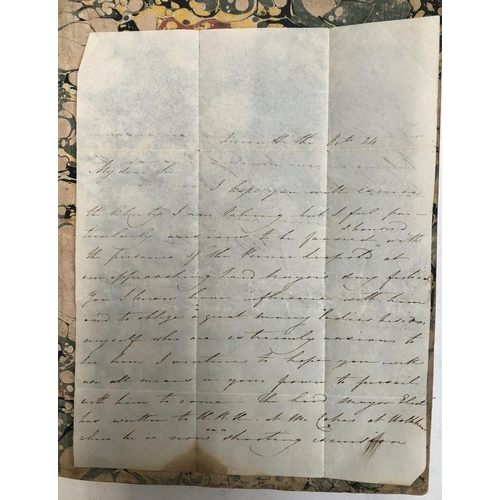 Oct 24
My dear Sir
I hope you will excuse
the liberty I am taking but I feel par-
ticularly anxious to be favored with
the presence of the at
our approaching Lord Mayors day
You I know have influence with him
and to oblige a great many ladies besides
myself who are extremely anxious to
see him I venture to hope you will
use all means in your power to prevail
with him to come the Lord Mayor Elect
has written to H.R.H. at Mr Cokes at Holkham
where he is now on a shooting excursion